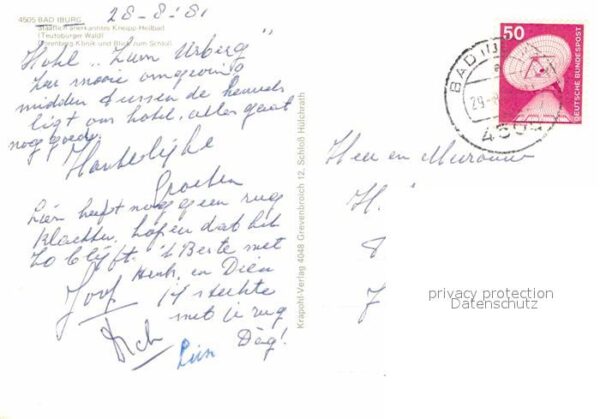 28-8-81
4505 BAD IBURG
Staatlich anerkanntes Kneipp-Heilbad
(Teutoburger Wald)
Dörenberg Klinik und Blick zum Schloß
Hotel „Zum Urberg"
har mooie omgeving
midden tussen de heuvels
ligt ons hotel, alles gaat
nog goed.
Hartelijke
Groeten
Lien heeft nog geen rug
klachten, hopen dat het
zo blijft. 't Beste met
Henk, en Dien
Joop
sterkte
met je rug
Dick
Dag!
Lien
Krapohl-Verlag 4048 Grevenbroich 12, Schloß Hülchrath
50
DEUTSCHE BUNDESPOST
BAD
29.
4505
Heer en Mevrouw
H.
8
J
privacy protection
Datenschutz